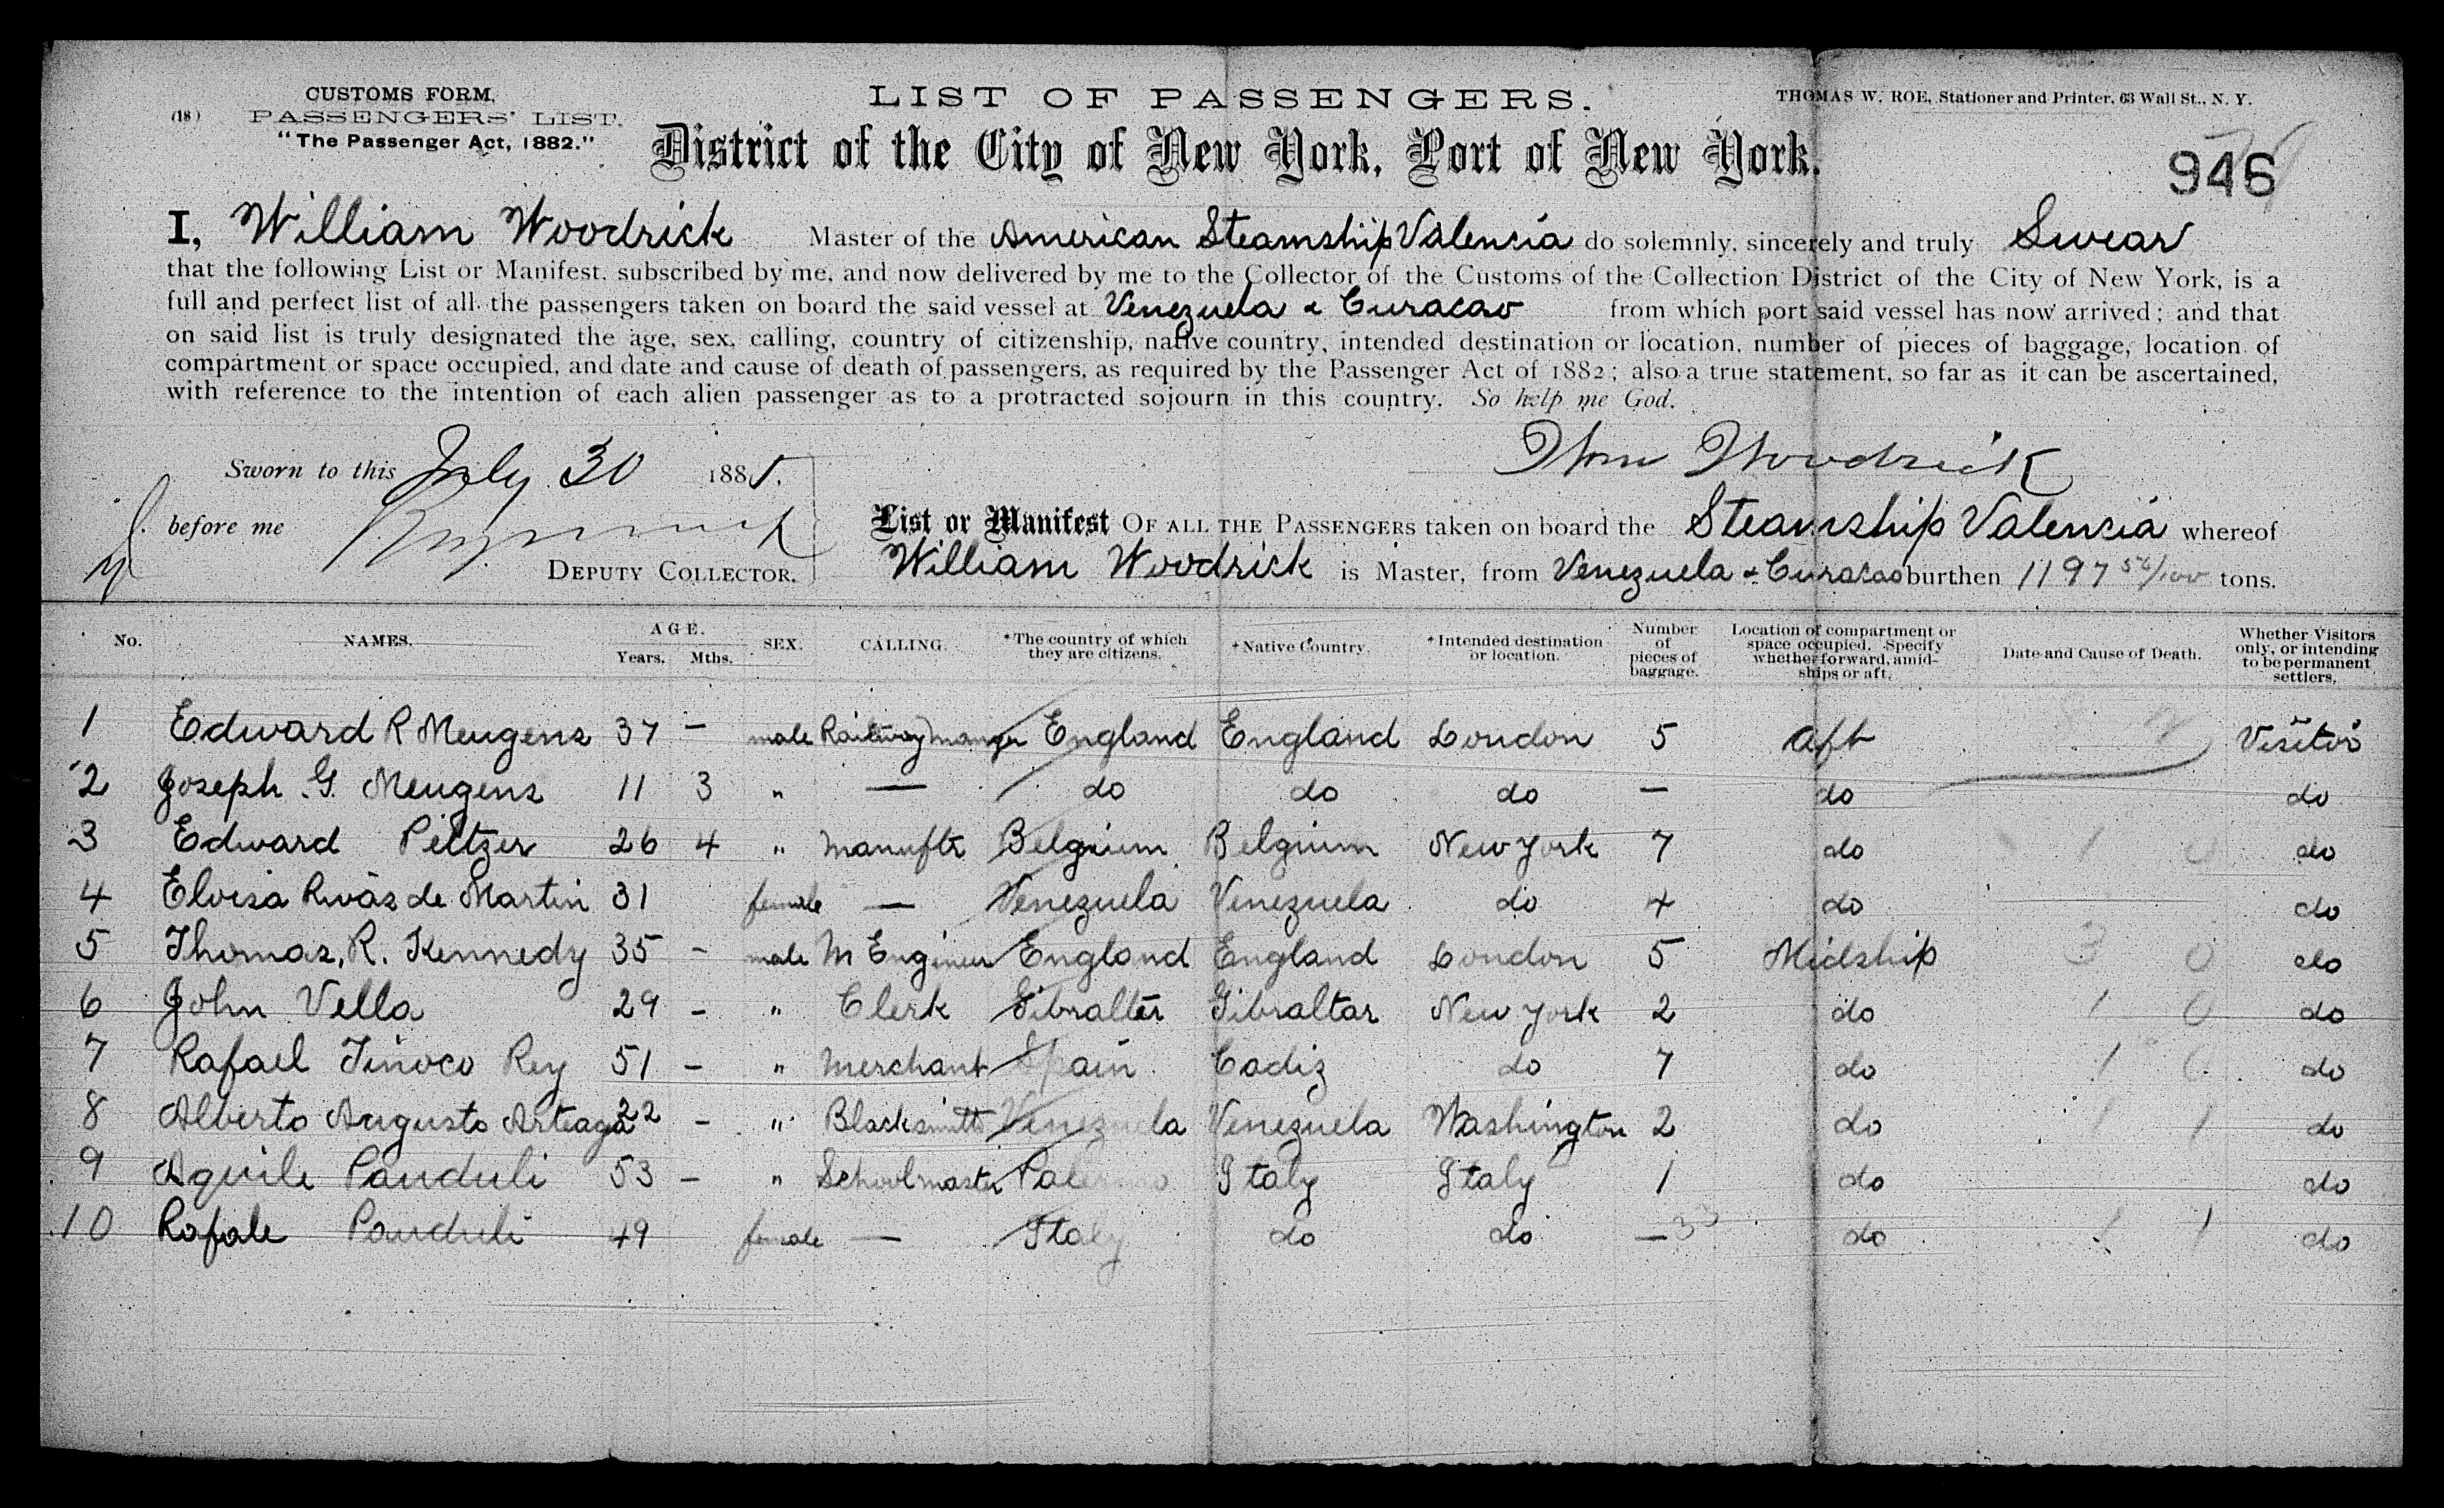 CUSTOMS FORM.
(18) PASSENGERS' LIST.
"The Passenger Act, 1882."
LIST OF PASSENGERS.
THOMAS W. ROE, Stationer and Printer, 63 Wall St., N. Y.
District of the City of New York, Port of New York.
946
I, William Woodrick Master of the American Steamship Valencia do solemnly, sincerely and truly Swear
that the following List or Manifest, subscribed by me, and now delivered by me to the Collector of the Customs of the Collection District of the City of New York, is a
full and perfect list of all the passengers taken on board the said vessel at Venezuela & Curacao from which port said vessel has now arrived; and that
on said list is truly designated the age, sex, calling, country of citizenship, native country, intended destination or location, number of pieces of baggage, location of
compartment or space occupied, and date and cause of death of passengers, as required by the Passenger Act of 1882; also a true statement, so far as it can be ascertained,
with reference to the intention of each alien passenger as to a protracted sojourn in this country. So help me God.
Sworn to this July 30 1885.
Wm Woodrick
before me
DEPUTY COLLECTOR.
List or Manifest OF ALL THE PASSENGERS taken on board the Steamship Valencia whereof
William Woodrick is Master, from Venezuela & Curacao burthen 1197 56/100 tons.
No. NAMES. AGE. Years. Mths. SEX. CALLING. *The country of which they are citizens. *Native Country. *Intended destination or location. Number of pieces of baggage. Location of compartment or space occupied. Specify whether forward, amidships or aft. Date and Cause of Death. Whether Visitors only, or intending to be permanent settlers.
1 Edward R Meugens 37 - male Railway manger England England London 5 Aft Visitor
2 Joseph G. Meugens 11 3 " — do do do — do do
3 Edward Peltzer 26 4 " manuftr Belgium Belgium New York 7 do do
4 Eloisa Rivas de Martin 31 female — Venezuela Venezuela do 4 do do
5 Thomas, R. Kennedy 35 - male M Engineer England England London 5 Midship do
6 John Vella 29 - " Clerk Gibralter Gibraltar New York 2 do do
7 Rafael Tinoco Rey 51 - " Merchant Spain Cadiz do 7 do do
8 Alberto Augusto Arteaga 22 - " Blacksmith Venezuela Venezuela Washington 2 do do
9 Aquile Panduli 53 - " Schoolmaster Palermo Italy Italy 1 do do
10 Rafale Panduli 49 female — Italy do do — 33 do do